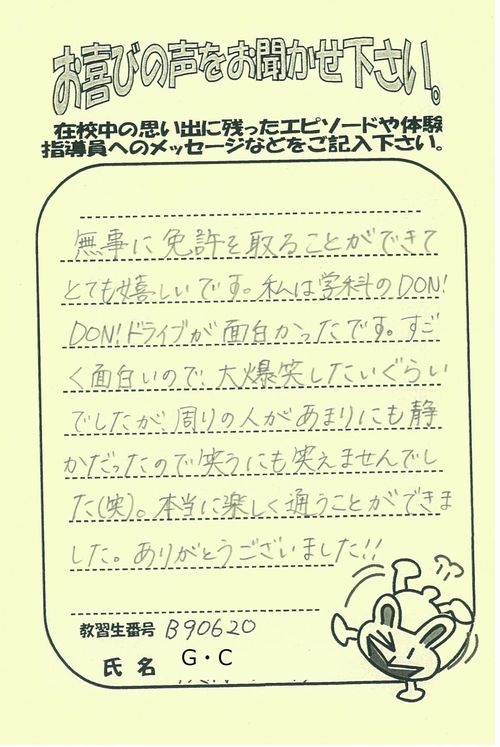 お喜びの声をお聞かせ下さい。
在校中の思い出に残ったエピソードや体験
指導員へのメッセージなどをご記入下さい。
無事に免許を取ることができて
とても嬉しいです。私は学科のDON!
DON!ドライブが面白かったです。すご
く面白いので、大爆笑したいぐらい
でしたが、周りの人があまりにも静
かだったので笑うにも笑えませんでし
た(笑)。本当に楽しく通うことができま
した。ありがとうございました!!
教習生番号 B90620
氏名 G・C